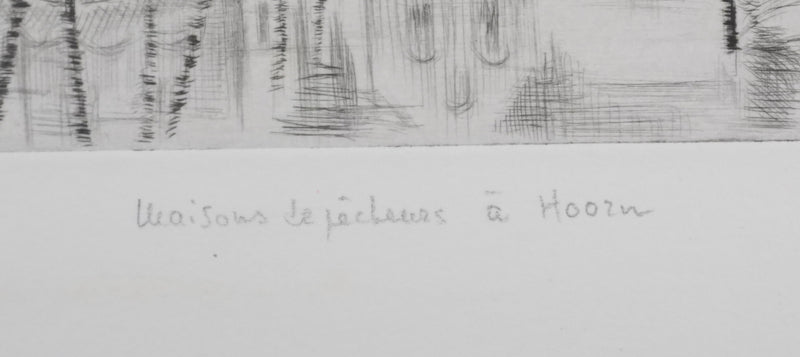 Maisons de pêcheurs à Hoorn